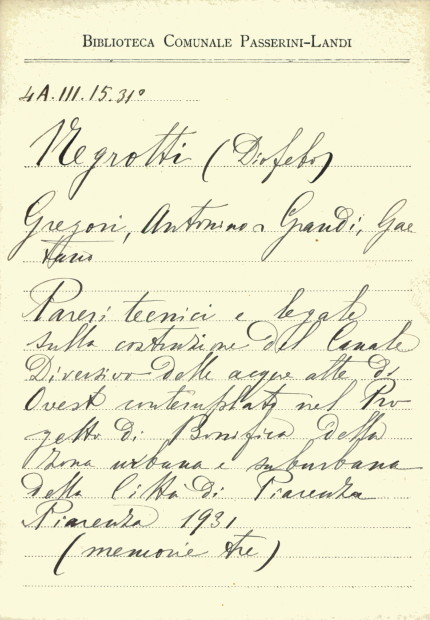 BIBLIOTECA COMUNALE PASSERINI-LANDI
4A.III.15.31°
Negrotti (Diofebo)
Gregori, Antonino - Grandi, Gae
tano
Pareri tecnici e legale
sulla costruzione del Canale
Diversivo delle acque alte di
Ovest contemplato nel Pro
getto di Bonifica della
Zona urbana e suburbana
della Città di Piacenza
Piacenza 1931
(memorie tre)